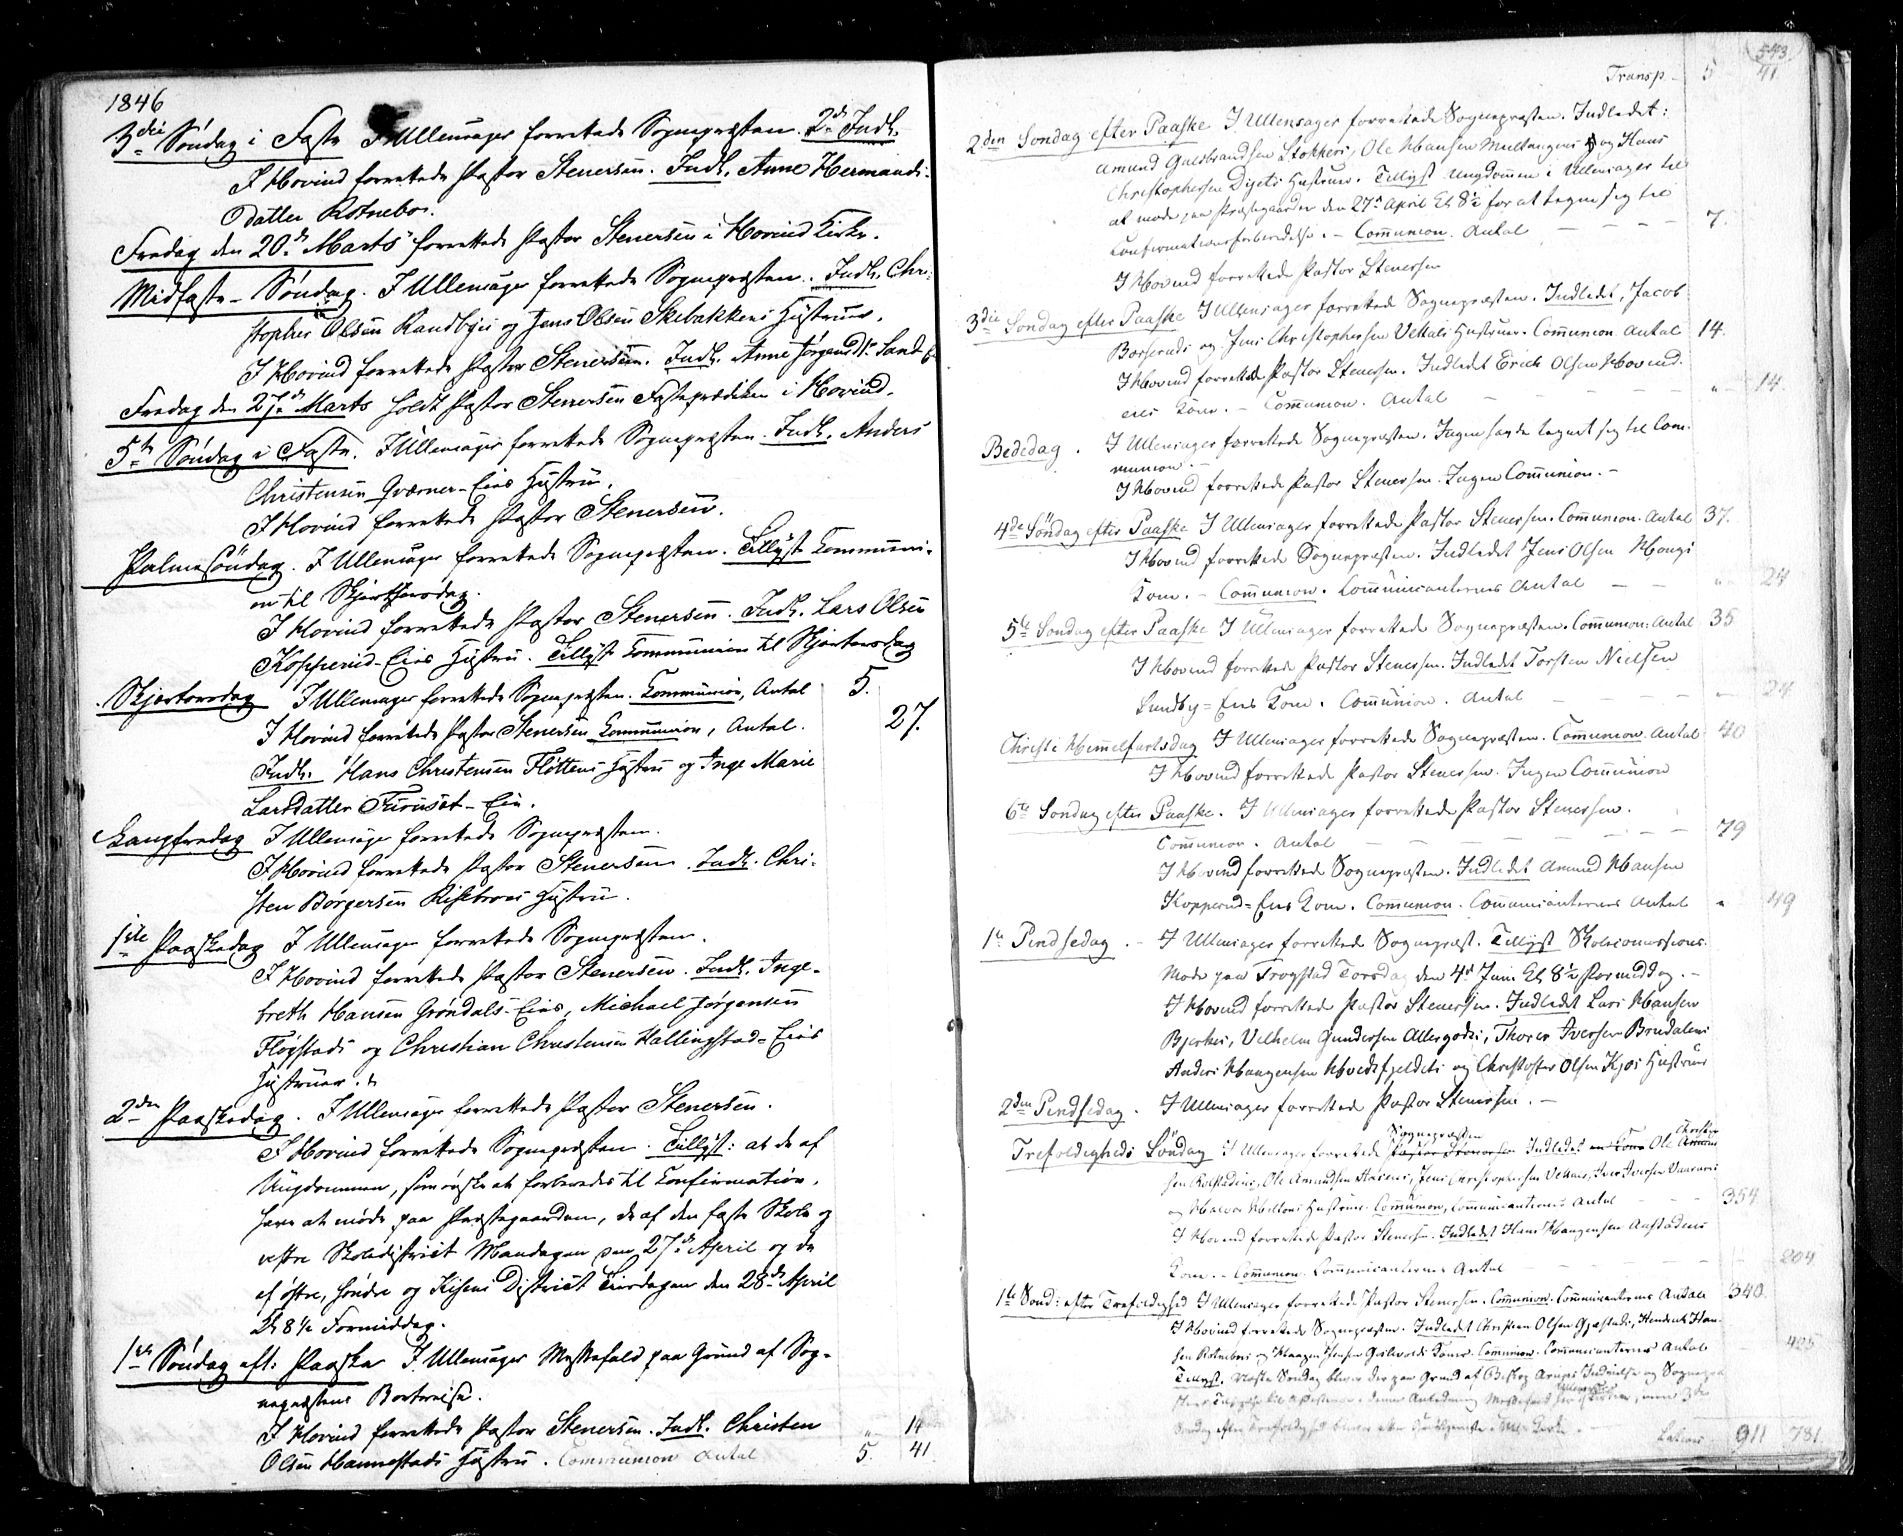 1846
3die Søndag i Faste I Ullensager forrettede Sognepræsten. 2de Indl.
I Hovind forrettede Pastor Stenersen. Indl. Anne Hermands-
datter Rotnebor.
Fredag den 20de Marts forrettede Pastor Stenersen i Hovind Kirke.
Midfaste-Søndag. I Ullensager forrettede Sognepræsten. Indl. Chri-
stopher Olsen Randbyes og Jens Olsen Skibakkens Hustruer.
I Hovind forrettede Pastor Stenersen. Indl. Anne Jørgensdtr Sand
Fredag den 27de Marts holdt Pastor Stenersen Fasteprædiken i Hovind.
5te Søndag i Faste. I Ullensager forrettede Sognepræsten. Indl. Anders
Christensen Qværner-Eies Hustru.
I Hovind forrettede Pastor Stenersen.
Palmesøndag. I Ullensager forrettede Sognepræsten. Tillyst Communi-
on til Skjærthorsdag.
I Hovind forrettede Pastor Stenersen. Indl. Lars Olsen
Kopperud-Eies Hustru. Tillyst Communion til Skjærtorsdag
Skjertorsdag I Ullensager forrettede Sognepræsten. Communion, Antal 5.
I Hovind forrettede Pastor Stenersen Communion, Antal. 27.
Indl. Hans Christensen Fløttens Hustru og Inge Marie
Larsdatter Furuset-Eie.
Langfredag I Ullensager forrettede Sognepræsten.
I Hovind forrettede Pastor Stenersen. Indl. Chri-
sten Børgersen Risebroes Hustru.
1ste Paaskedag I Ullensager forrettede Sognepræsten.
I Hovind forrettede Pastor Stenersen. Indl. Inge-
breth Hansen Grøndals-Eies, Michael Jørgensen
Fløgstads og Christian Christensen Hallingstad-Eies
Hustruer.
2den Paaskedag. I Ullensager forrettede Pastor Stenersen.
I Hovind forrettede Sognepræsten. Tillyst: at de af
Ungdommen, som ønske at forberedes til Confirmation,
have at møde paa Præstegaarden, de af den faste Skole og
vestre Skoledistrict Mandagen den 27de April og de
af østre, søndre og Kisens District Tirsdagen den 28de April
Kl 8 ½ Formiddag.
1ste Søndag eft: Paaske I Ullensager Messefald paa Grund af Sog-
nepræstens Bortreise.
I Hovind forrettede Pastor Stenersen. Indl. Christen " 14
Olsen Hannestads Hustru. Communion Antal 5. 41.
543
Transp - 5 41
2den Søndag efter Paaske I Ullensager forrettede Sognepræsten. Indledet:
Amund Gulbrandsen Stokkers, Ole Hansen og Hans
Christophersen Hustruer. Tillyst Ungdommen i Ullensager til
at møde paa Præstegaarden den 27de April Kl 8½ for at tegne sig til
Confirmationsforberedelse. - Communion. Antal - - - 7.
I Hovind forrettede Pastor Stenersen
3die Søndag efter Paaske I Ullensager forrettede Sognepræsten. Indledet, Jacob
og Jens Christophersen Hustruer. Communion Antal 14.
I Hovind forrettede Pastor Stenersen. Indledet Erich Olsen Hovind-
eies Kone. - Communion. Antal - - - " - 14.
Bededag. I Ullensager forrettede Sognepræsten. Ingen havde tegnet sig til Com-
munion. -
I Hovind forrettede Pastor Stenersen. Ingen Communion. -
4de Søndag efter Paaske I Ullensager forrettede Pastor Stenersen. Communion. Antal 37.
I Hovind forrettede Sognepræsten. Indledet Jens Olsen Haugs
Kone. - Communion. Communicanternes Antal - - " 24
5te Søndag efter Paaske I Ullensager forrettede Sognepræsten. Communion: Antal 35
I Hovind forrettede Pastor Stenersen. Indledet Torsten Nielsen
Sundby-Eies Kone. Communion. Antal - - - 24
Christi Himmelfartsdag I Ullensager forrettede Sognepræsten. Communion. Antal 40
I Hovind forrettede Pastor Stenersen. Ingen Communion
6te Søndag efter Paaske. I Ullensager forrettede Pastor Stenersen.
Communion. Antal - - - 79
I Hovind forrettede Sognepræsten. Indledet Amund Hansen
Kopperud-Eies Kone. Communion. Communicanternes Antal " 49
1te Pindsedag. - I Ullensager forrettede Sognepræst. Tillyst Skolecommissions-
Møde paa Trogstad Torsdag den 4de Juni Kl 8½ Formiddag. -
I Hovind forrettede Pastor Stenersen. Indledet Lars Hansen
Bjerkes, Vilhelm Gundersen Allergodts, Thorer Iversen Brudalens
Anders Haagensen og Christoffer Olsen Kjos Hustruer
2den Pindsedag. I Ullensager forrettede Pastor Stenersen. -
Sognepræsten
Trefoldigheds Søndag I Ullensager forrettede Pastor Stenersen Indledet Ole Christen
sen Ole Amundsen Jens Christophersen Iver Iversen
og Halvor Hustruer. Communion, Communicanternes Antal - - 354
I Hovind forrettede Pastor Stenersen. Indledet Hans Haagensen
Kone. - Communion. Communicanternes Antal - - - 204
1te Sønd: efter Trefoldighed I Ullensager forrettede Pastor Stenersen. Communion. Communicanternes Antal 340.
I Hovind forrettede Sognepræsten. Indledet Christian Olsen Gjestads, Henrik Han-
sen og Haagen Koner. Communion. Communicanternes Antal 425
Tillyst. Næste Søndag bliver der paa Grund af Biskop Arups Indvielse og Sognepræ
Messefald
Søndag efter Trefoldighed
Lateris 911 781.